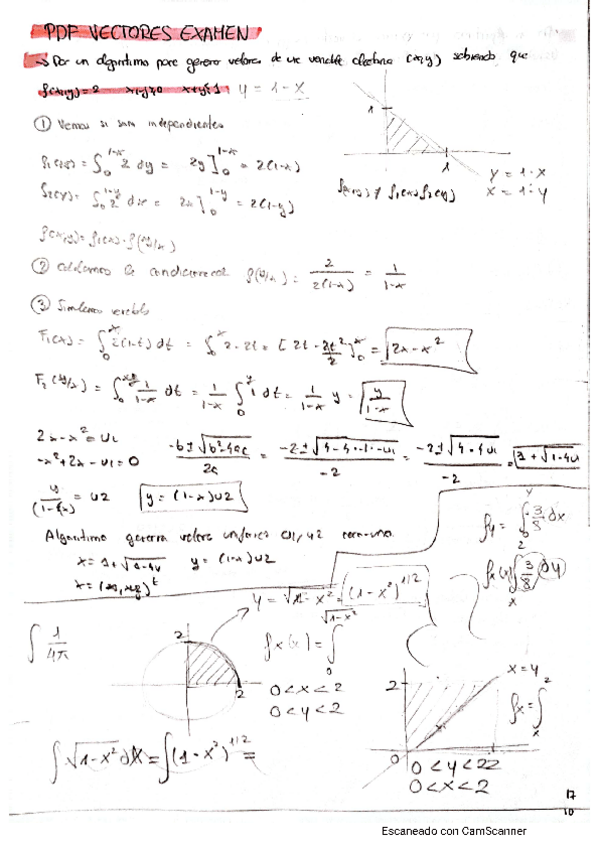 PDF VECTORES EXAMEN
→ Dar un algoritmo para generar valores de una variable aleatoria (x,y) sabiendo que
f(x,y) = 2 x,y≥0 x+y≤1 y = 1-x
1
1
y = 1-x
x = 1-y
① Vemos si son independientes
f1(x) = ∫₀^{1-x} 2 dy = 2y ]₀^{1-x} = 2(1-x)
f2(y) = ∫₀^{1-y} 2 dx = 2x ]₀^{1-y} = 2(1-y)
f(x,y) ≠ f1(x) f2(y)
f(x,y) = f1(x) · f(y/x)
② calculamos la condicional f(y/x) = 2/2(1-x) = 1/1-x
③ Simulamos
F1(x) = ∫₀^x 2(1-t) dt = ∫₀^x 2-2t = [2t - 2t²/2]₀^x = 2x-x²
F2(y/x) = ∫₀ 1/1-x dt = 1/1-x ∫₀^y 1 dt = 1/1-x y = y/1-x
2x-x² = u1
-x²+2x-u1=0
-b±√b²-4ac / 2a = -2±√4-4·-1·-u1 / -2 = -2±√4-4u1 / -2
y/(1-x) = u2 y = (1-x)u2
Algoritmo generar valores uniformes u1, u2
x = 1+√1-u y = (1-x)u2
fy = ∫ 3/8 dx
fx(x) ∫ 3/8 dy
∫ 1/4π
2
2
y = √1-x² = (1-x²)^{1/2}
fx(x) = ∫₀^{√1-x²}
0<x<2
0<y<2
∫√1-x² dx = ∫(1-x²)^{1/2} =
2
0
x=y
fx = ∫ₓ²
0<y<2
0<x<2
17
10
Escaneado con CamScanner